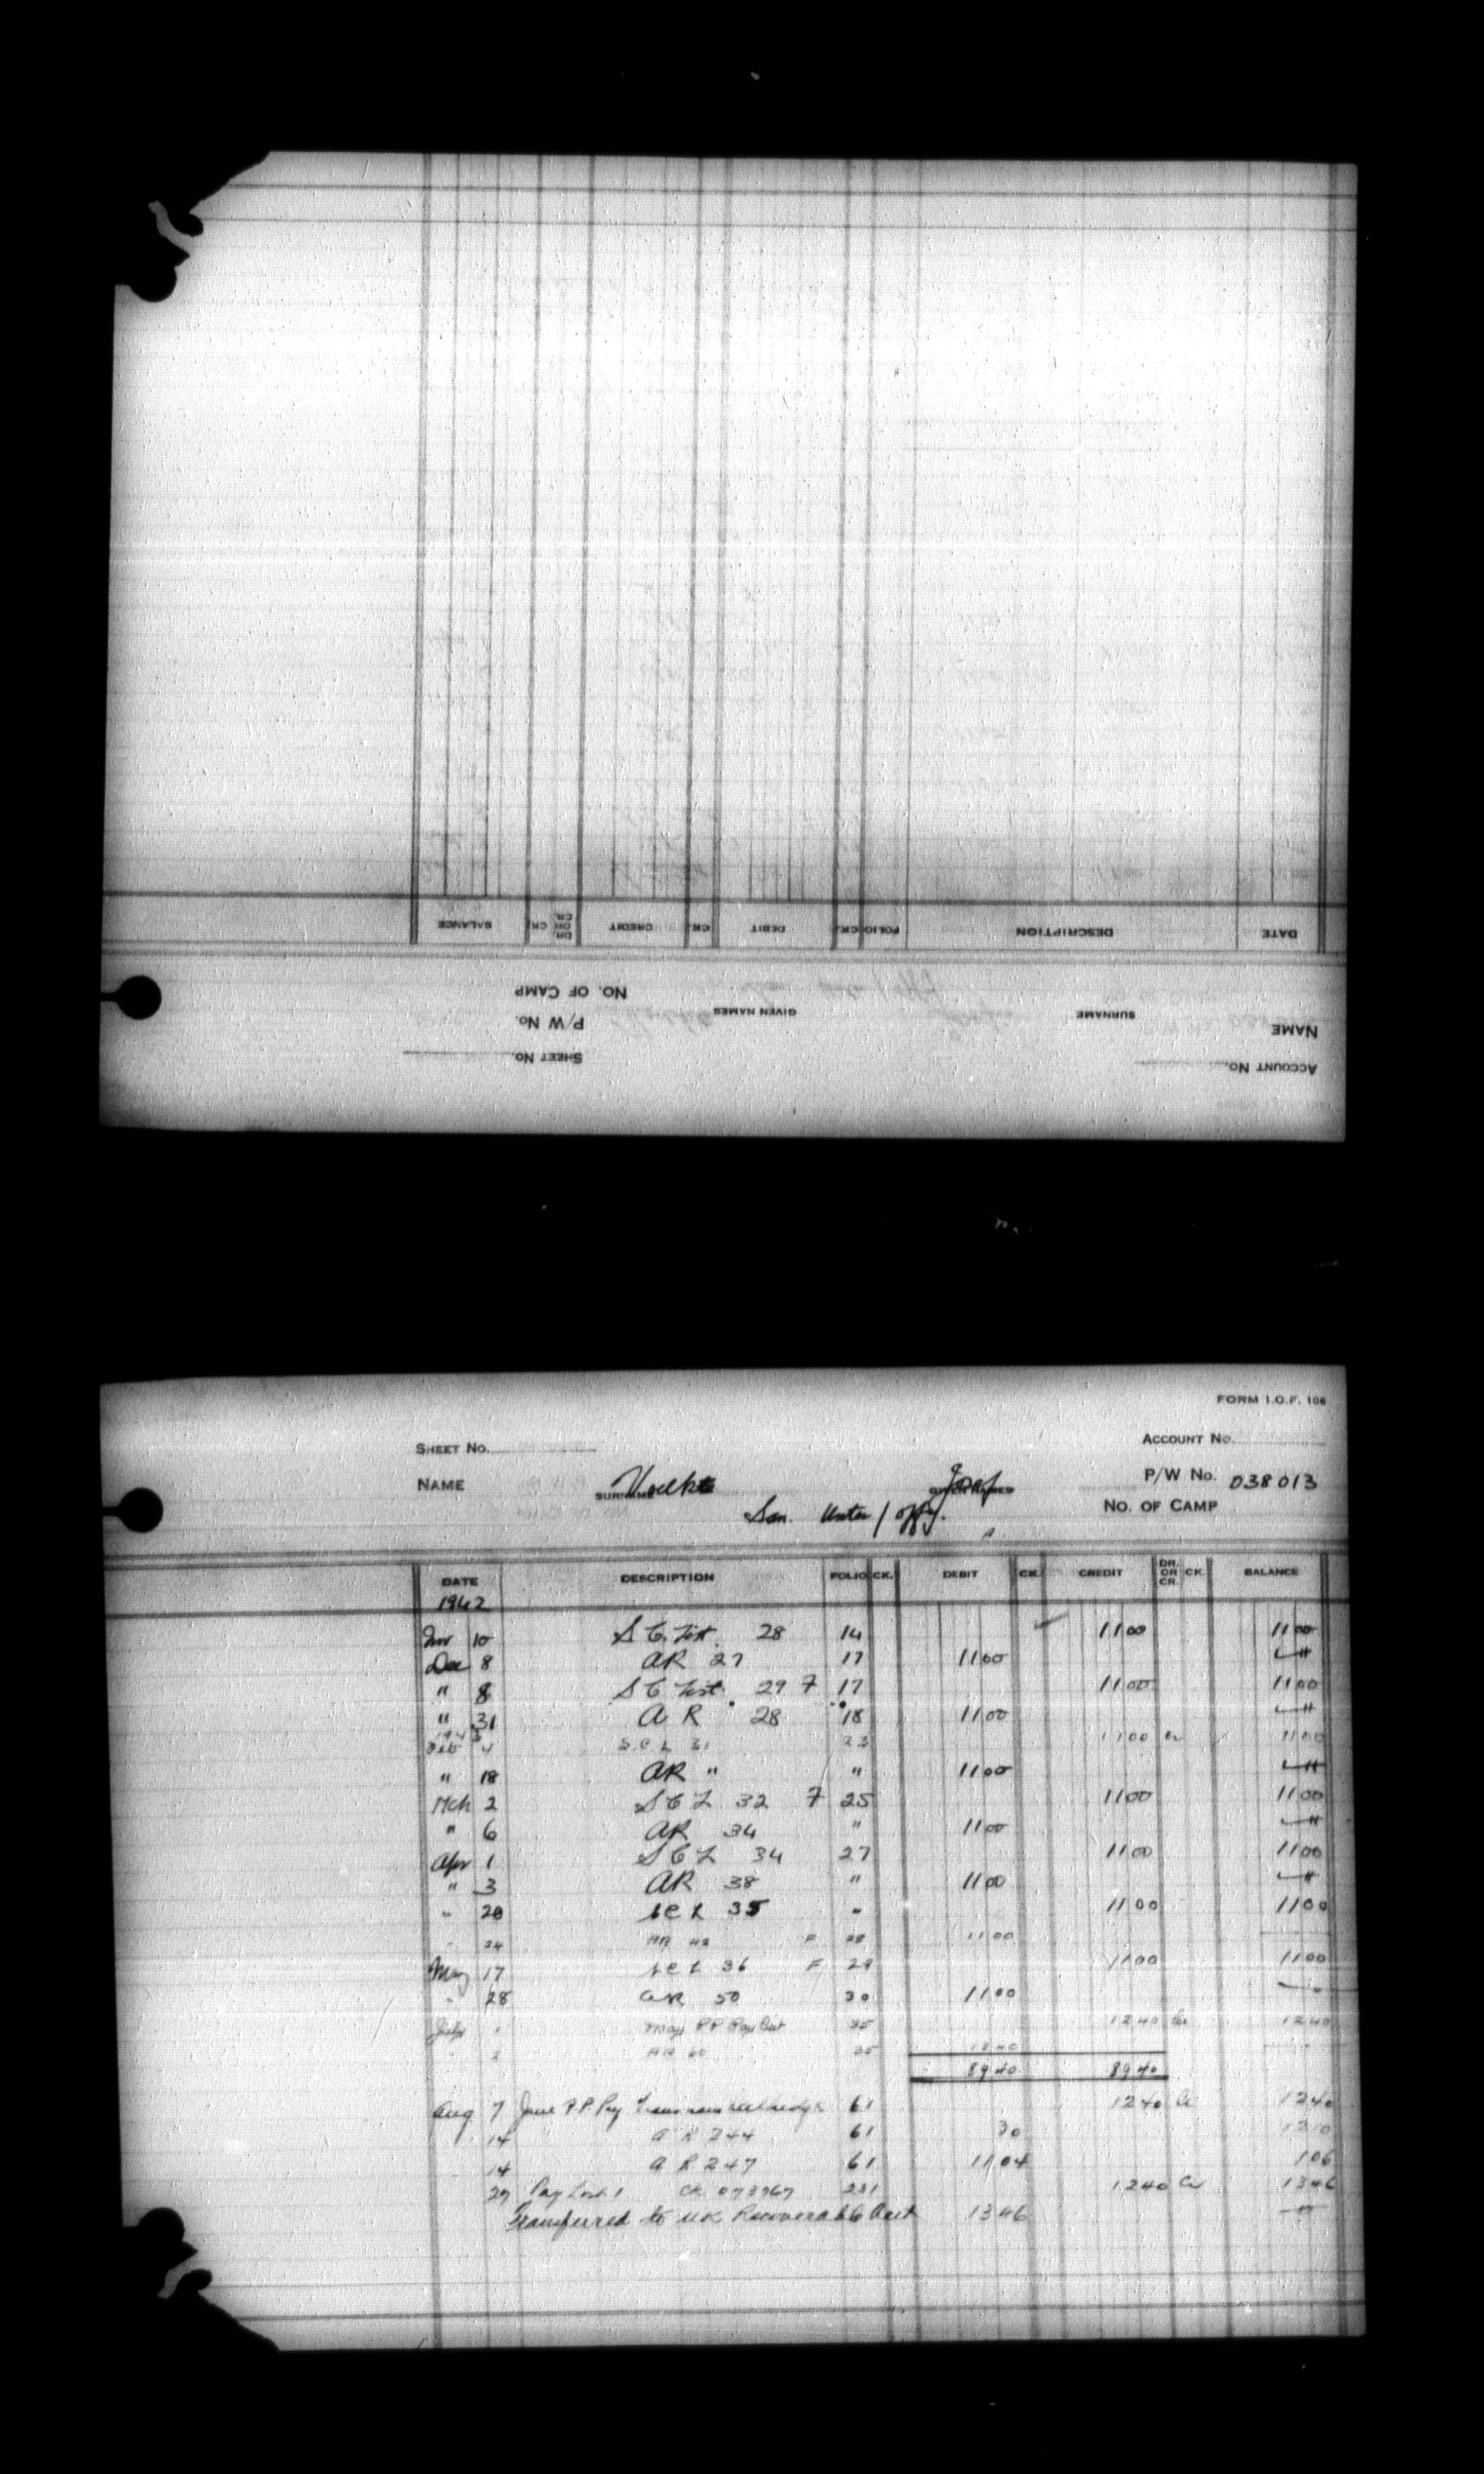 BALANCE CK. DR. OR CR. CREDIT CK. DEBIT CK. FOLIO DESCRIPTION DATE
NO. OF CAMP
P/W No. GIVEN NAMES SURNAME NAME
SHEET No. ACCOUNT No.
FORM I.O.F. 106
SHEET No. ACCOUNT No.
NAME SURNAME Josef GIVEN NAMES P/W No. 038013
San. Unter/offz. NO. OF CAMP
DATE DESCRIPTION FOLIO CK. DEBIT CK. CREDIT DR. OR CR. CK. BALANCE
1942
10 S C List 28 14 1100 1100
Dec 8 AR 27 17 1100
" 8 S C List 29 F 17 1100 1100
" 31 A R 28 18 1100
1943
Feb 4 S.C.L 31 23 1100 Cr 1100
" 18 AR " " 1100
Mch 2 S C L 32 F 25 1100 1100
" 6 AR 34 " 1100
Apr 1 S C L 34 27 1100 1100
" 3 AR 38 " 1100
" 20 S C L 35 " 1100 1100
" 24 AR 42 F 28 1100
May 17 S C L 36 F 29 1100 1100
" 28 AR 50 30 1100
July 1 May P P Pay List 35 1240 Cr 1240
" 2 AR 60 35 1240
8940 8940
Aug 7 June P.P. Pay 61 1240 Cr 1240
14 A R 244 61 30 1210
14 A R 247 61 1104 106
29 Pay List 1 231 1240 Cr 1346
Transferred to UK Recoverable Acct 1346